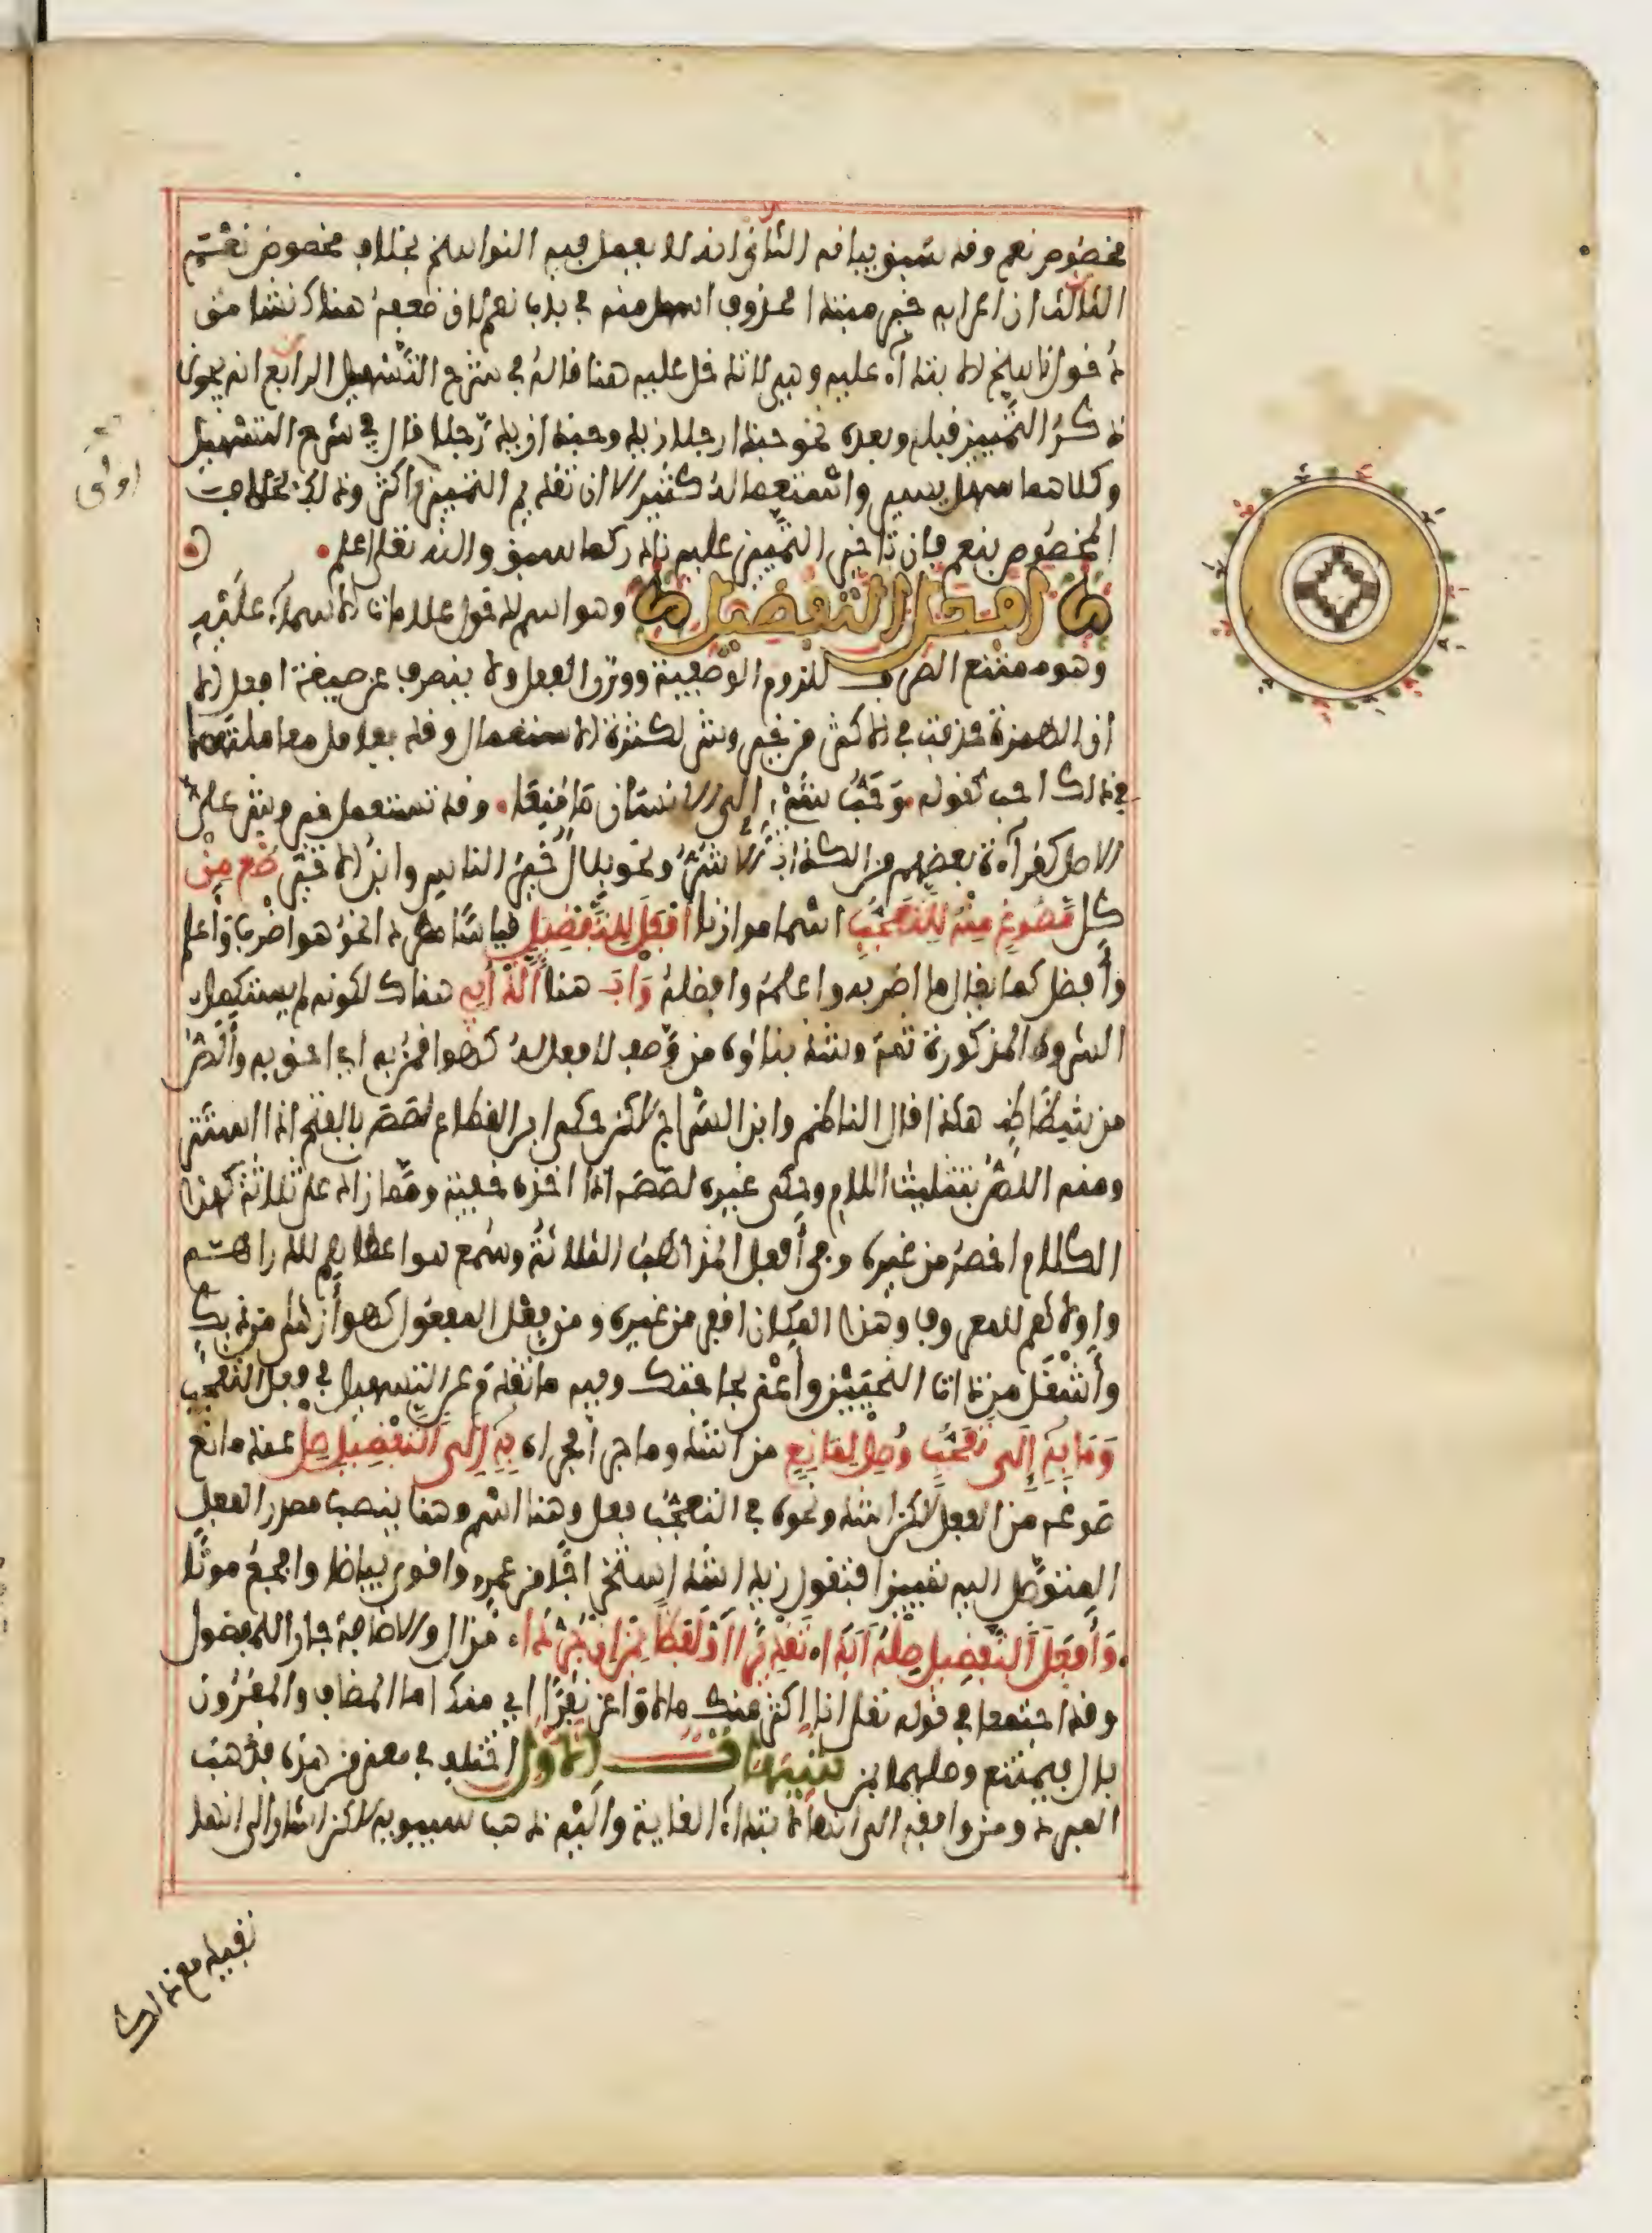 مخصوص نعم وقد سبق بيانه الثاني انه لا يعمل فيه النواسخ بخلاف مخصوص نعم
الثالث ان اعرابه خبر مبتدا محذوف اسهل منه في باب نعم لان ضعفه هناك نشا من
دخول نواسخ الابتداء عليه وهي لا تدخل عليه هنا قاله في شرح التسهيل الرابع انه يجوز
ذكر التمييز قبله وبعده نحو حبذا رجلا زيد وحبذا زيد رجلا قال في شرح التسهيل
وكلاهما سهل يسير واستعماله كثير الا ان تقديم التمييز اكثر وذلك بخلاف
المخصوص بنعم فان تاخير التمييز عليه نادر كما سبق والله تعلى اعلم
افعل التفضيل وهو اسم لدخول علامات الاسماء عليه
وهو ممتنع الصرف للزوم الوصفية ووزن الفعل ولا ينصرف عن صيغة افعل الا
ان الهمزة حذفت في الاكثر من خير وشر لكثرة الاستعمال وقد يعامل معاملتهما
في ذلك احب كقوله وحب شيء الى الانسان ما منعا وقد تستعمل خير وشر على
الاصل كقراءة بعضهم من الكذاب الاشر ونحو بلال خير الناس وابن الاخير صغ من
كل مصوغ منه للتعجب اسما موازنا افعل للتفضيل قياسا مطردا نحو هو اضرب واعلم
وافضل كما يقال ما اضربه واعلمه وافضله واب هنا اللذ ابي هناك لكونه لم يستكمل
الشروط المذكورة ثمة وشذ بناؤه من وصف لا فعل له كهو اقمن به اي احق به والص
من شظاظ هكذا قال الناظم وابن السراج لاكن حكى ابن القطاع لصص بالفتح اذا استتر
ومنه اللص بتثليث اللام وحكى غيره لصصه اذا اخذه خفية ومما زاد على ثلاثة كهذا
الكلام اخصر من غيره وفي افعل المذاهب الثلاثة وسمع هو اعطاهم للدراهم
واولاهم للمعروف وهذا المكان اقفر من غيره ومن فعل المفعول كهو ازهى من ديك
واشغل من ذات النحيين واعنى بحاجتك وفيه ما تقدم عن التسهيل في فعل التعجب
وما به الى تعجب وصل لمانع من اشد وما جرى مجراه به الى التفضيل صل عند مانع
صوغه من الفعل لاكن اشد ونحوه في التعجب فعل وهنا اسم وهنا ينصب مصدر الفعل
المتوصل اليه تمييزا فتقول زيد اشد استخراجا من عمرو واقوى بياضا وافجع موتا
وافعل التفضيل صله ابدا تقديرا او لفظا بمن ان جردا من ال والاضافة جارا للمفضول
وقد اجتمعا في قوله تعلى انا اكثر منك مالا واعز نفرا اي منك اما المضاف والمقرون
بال فيمتنع وصلهما بمن تنبيهات الاول اختلف في معنى من هذه فذهب
المبرد ومن وافقه الى انها لابتداء الغاية واليه ذهب سيبويه لاكن اشار الى انها
تفيد مع ذلك